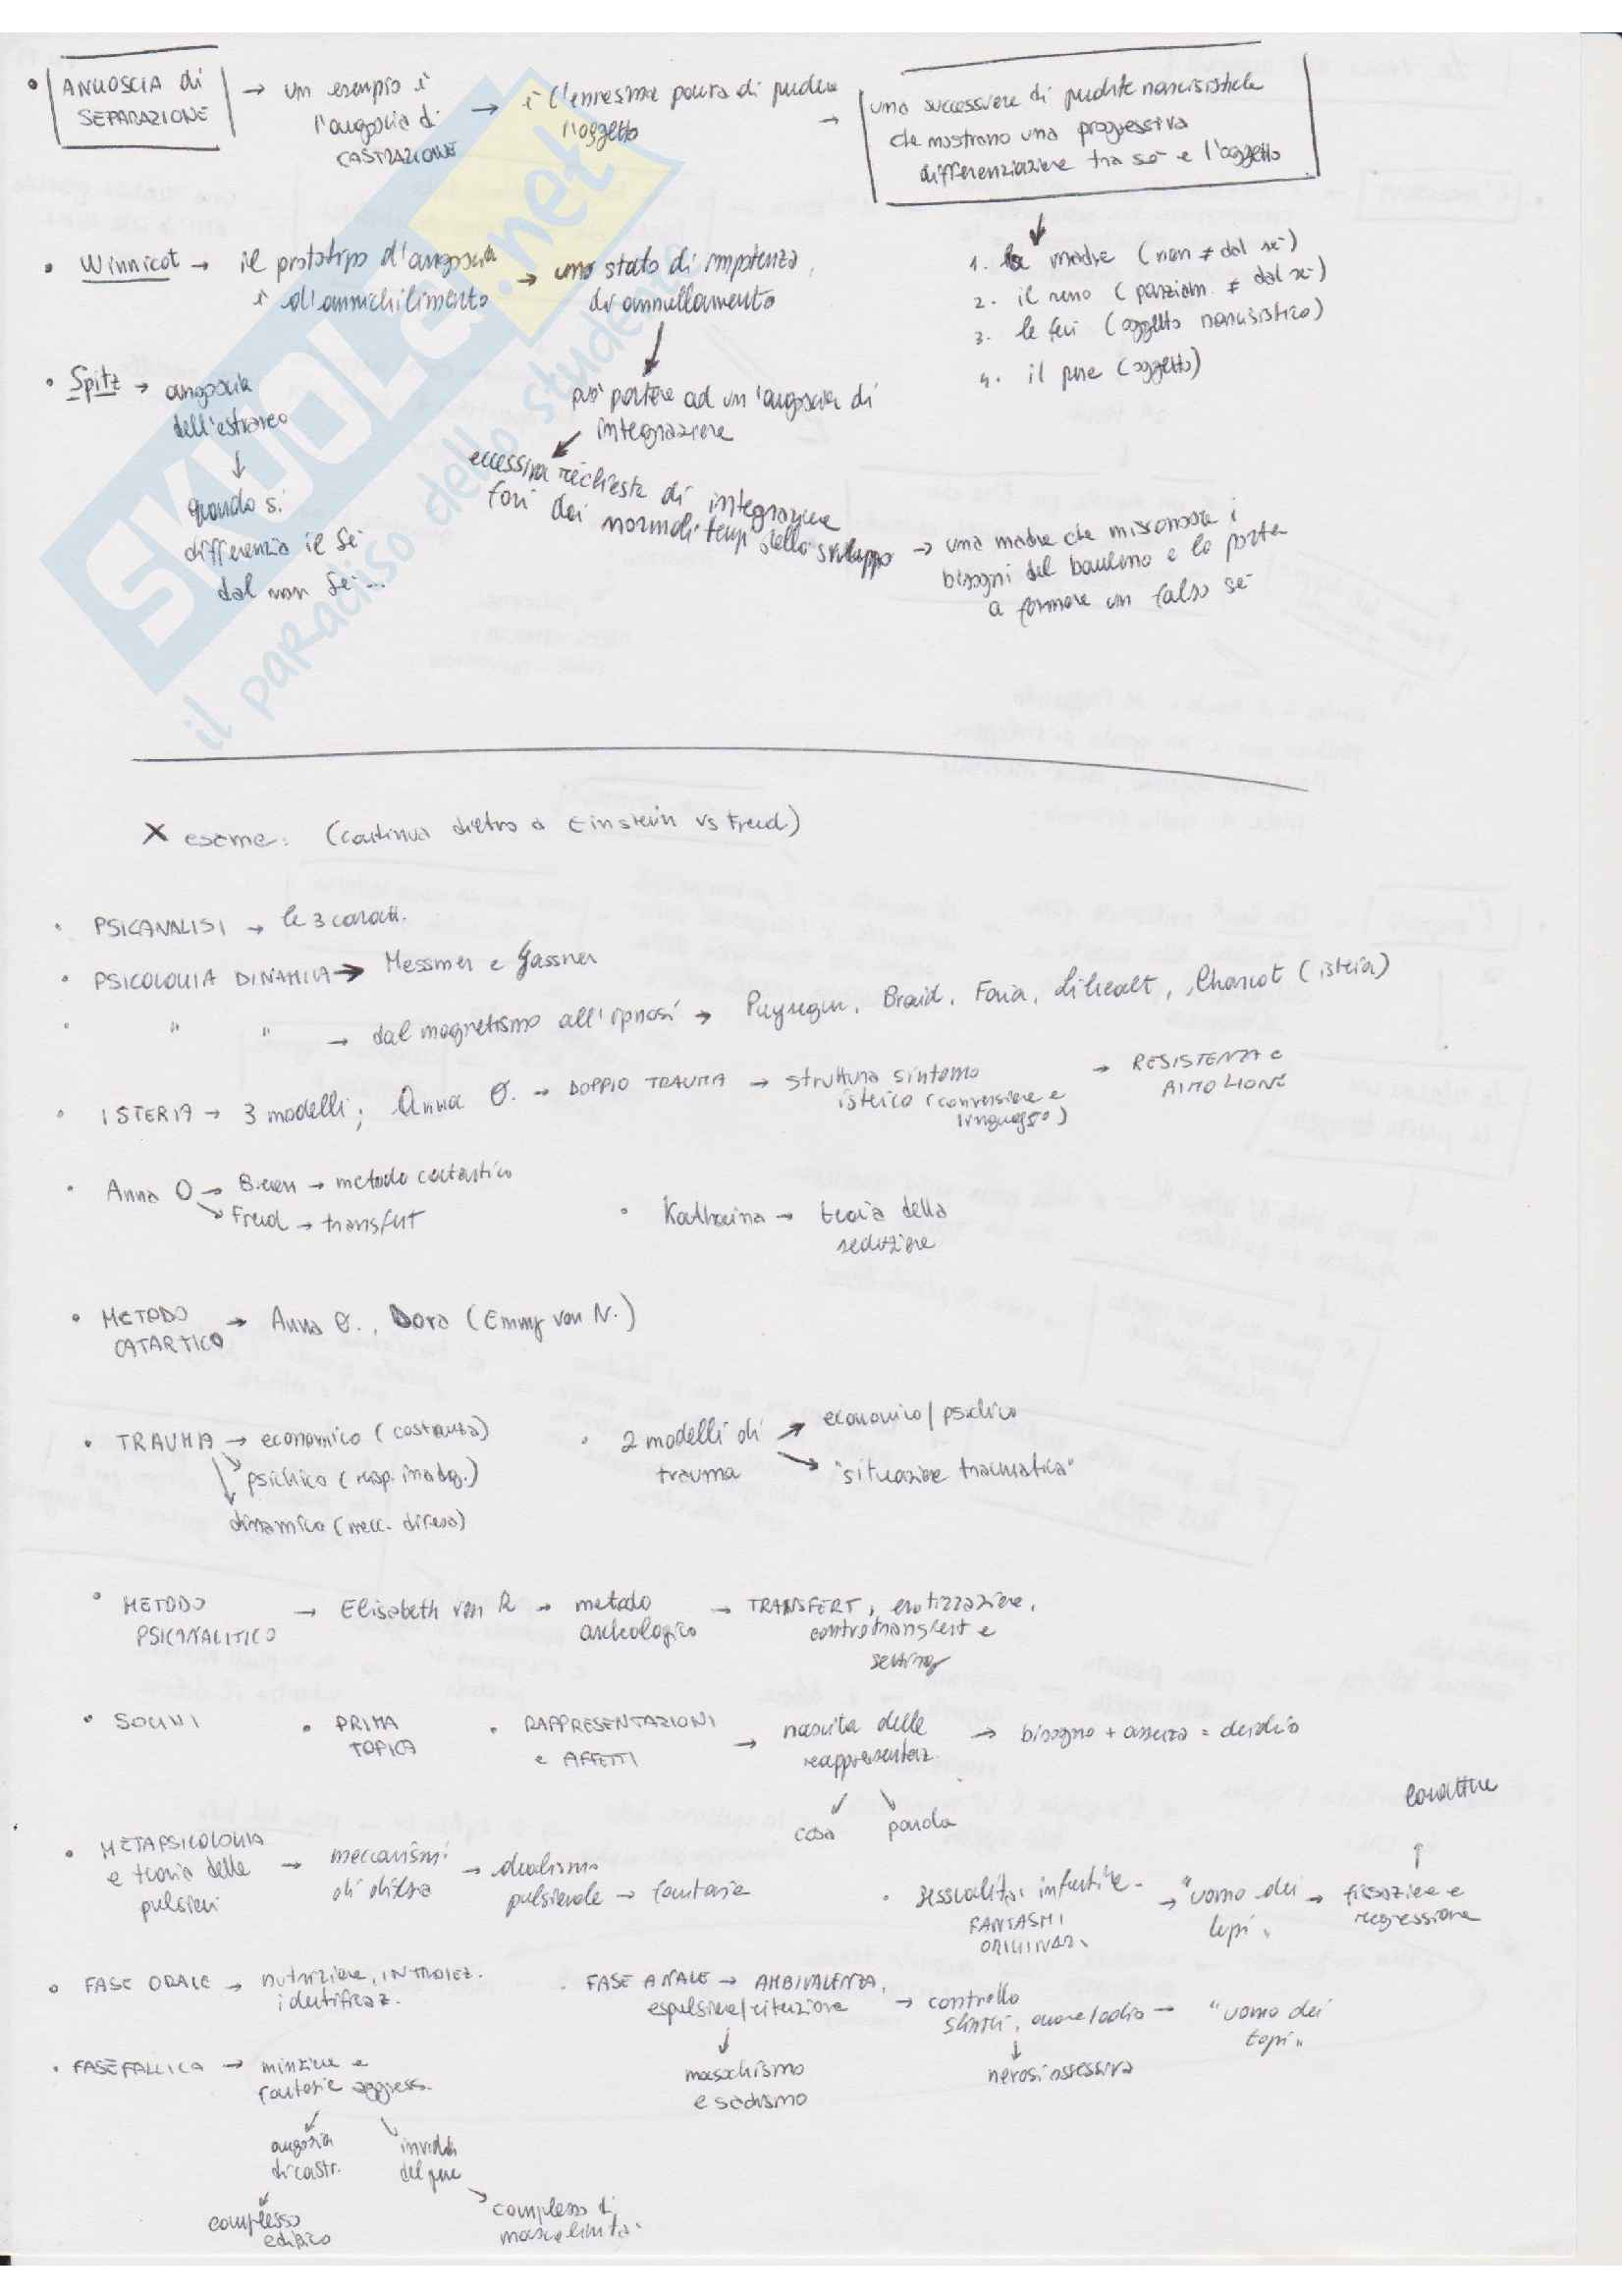 • ANGOSCIA di
SEPARAZIONE
→ un esempio è
l'angoscia di
CASTRAZIONE
→ è l'ennesima paura di perdere
l'oggetto
→ una successione di perdite narcisistiche
che mostrano una progressiva
differenziazione tra sé e l'oggetto
1. la madre (non ≠ dal sé)
2. il seno (parzialm. ≠ dal sé)
3. le feci (oggetto narcisistico)
4. il pene (oggetto)
• Winnicot → il prototipo d'angoscia
è d'annichilimento
→ uno stato di impotenza,
di annullamento
può portare ad un'angoscia di
integrazione
eccessiva richiesta di integrazione
fuori dai normali tempi dello sviluppo
→ una madre che misconosce i
bisogni del bambino e lo porta
a formare un falso sé
• Spitz → angoscia
dell'estraneo
↓
quando si
differenzia il Sé
dal non Sé...
SKUOLA.net
il paradiso dello studente
X esame: (continua dietro a Einstein vs Freud)
• PSICANALISI → le 3 caratt.
• PSICOLOGIA DINAMICA → Messmer e Gassner
• " " → dal magnetismo all'ipnosi → Puysegur, Braid, Faria, Lihealt, Charcot (isteria)
• ISTERIA → 3 modelli; Anna O. → DOPPIO TRAUMA → struttura sintomo
isterico (conversione e
linguaggio)
→ RESISTENZA e
RIMOZIONE
• Anna O → Breuer → metodo catartico
↘ Freud → transfert
• Katharina → teoria della
seduzione
• METODO
CATARTICO
→ Anna O., Dora (Emmy von N.)
• TRAUMA → economico (costanza)
psichico (risp. inadeg.)
dinamico (mecc. difesa)
• 2 modelli di
trauma
economico/psichico
"situazione traumatica"
• METODO
PSICANALITICO
→ Elisabeth von R → metodo
archeologico
→ TRANSFERT, erotizzazione,
controtransfert e
setting
• SOGNI
• PRIMA
TOPICA
• RAPPRESENTAZIONI
e AFFETTI
→ nascita delle
reappresentaz.
→ bisogno + assenza = desiderio
cosa
parola
• METAPSICOLOGIA
e teoria delle
pulsioni
→ meccanismi
di difesa
→ dualismo
pulsionale → fantasie
• Sessualità infantile -
FANTASMI
ORIGINARI
→ "uomo dei
lupi"
→ fissazione e
regressione
↑
carattere
• FASE ORALE → nutrizione, INTROIEZ.
identificaz.
• FASE ANALE → AMBIVALENZA,
espulsione/ritenzione
↓
masochismo
e sadismo
→ controllo
sfinteri, amore/odio →
↓
nevrosi ossessiva
"uomo dei
topi"
• FASE FALLICA → minzione e
fantasie aggress.
angoscia
di castr.
invidia
del pene
complesso
edipico
complesso di
mascolinità.